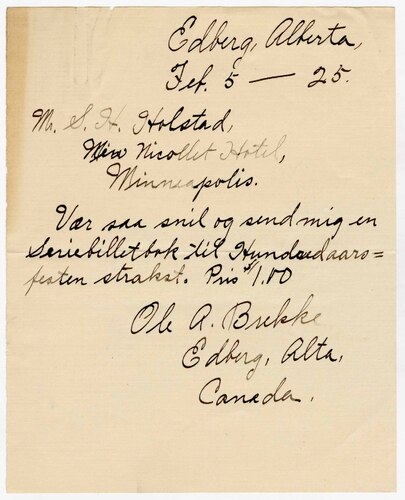 Edberg, Alberta,
Feb. 5 — 25.
Mr. S. H. Holstad,
New Nicollet Hotel,
Minneapolis.
Vær saa snil og send mig en
Seriebilletbok til Hundredaars=
festen strakst. Pris $1.00
Ole A. Brekke
Edberg, Alta,
Canada.